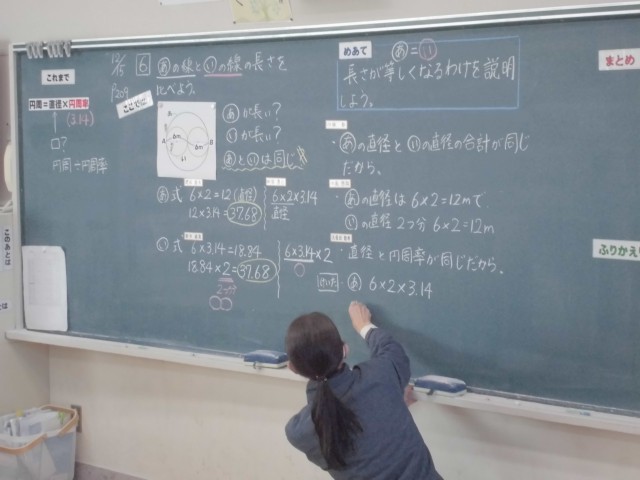 これまで
円周=直径×円周率
(3.14)
↑
□?
円周÷円周率
12/15
P209
6
こにでに
あの線といの線の長さを
比べよう。
A
B
あが長い?
いが長い?
あといは同じ
あ 式 6×2=12(直径)
12×3.14=37.68
6×2×3.14
直径
い 式 6×3.14=18.84
18.84×2=37.68
2つ分
6×3.14×2
めあて
あ=い
長さが等しくなるわけを説明
しよう。
・あの直径といの直径の合計が同じ
だから。
・あの直径は6×2=12mで
いの直径2つ分6×2=12m
・直径と円周率が同じだから。
あ 6×2×3.14
まとめ
ふりかえり
このあとは